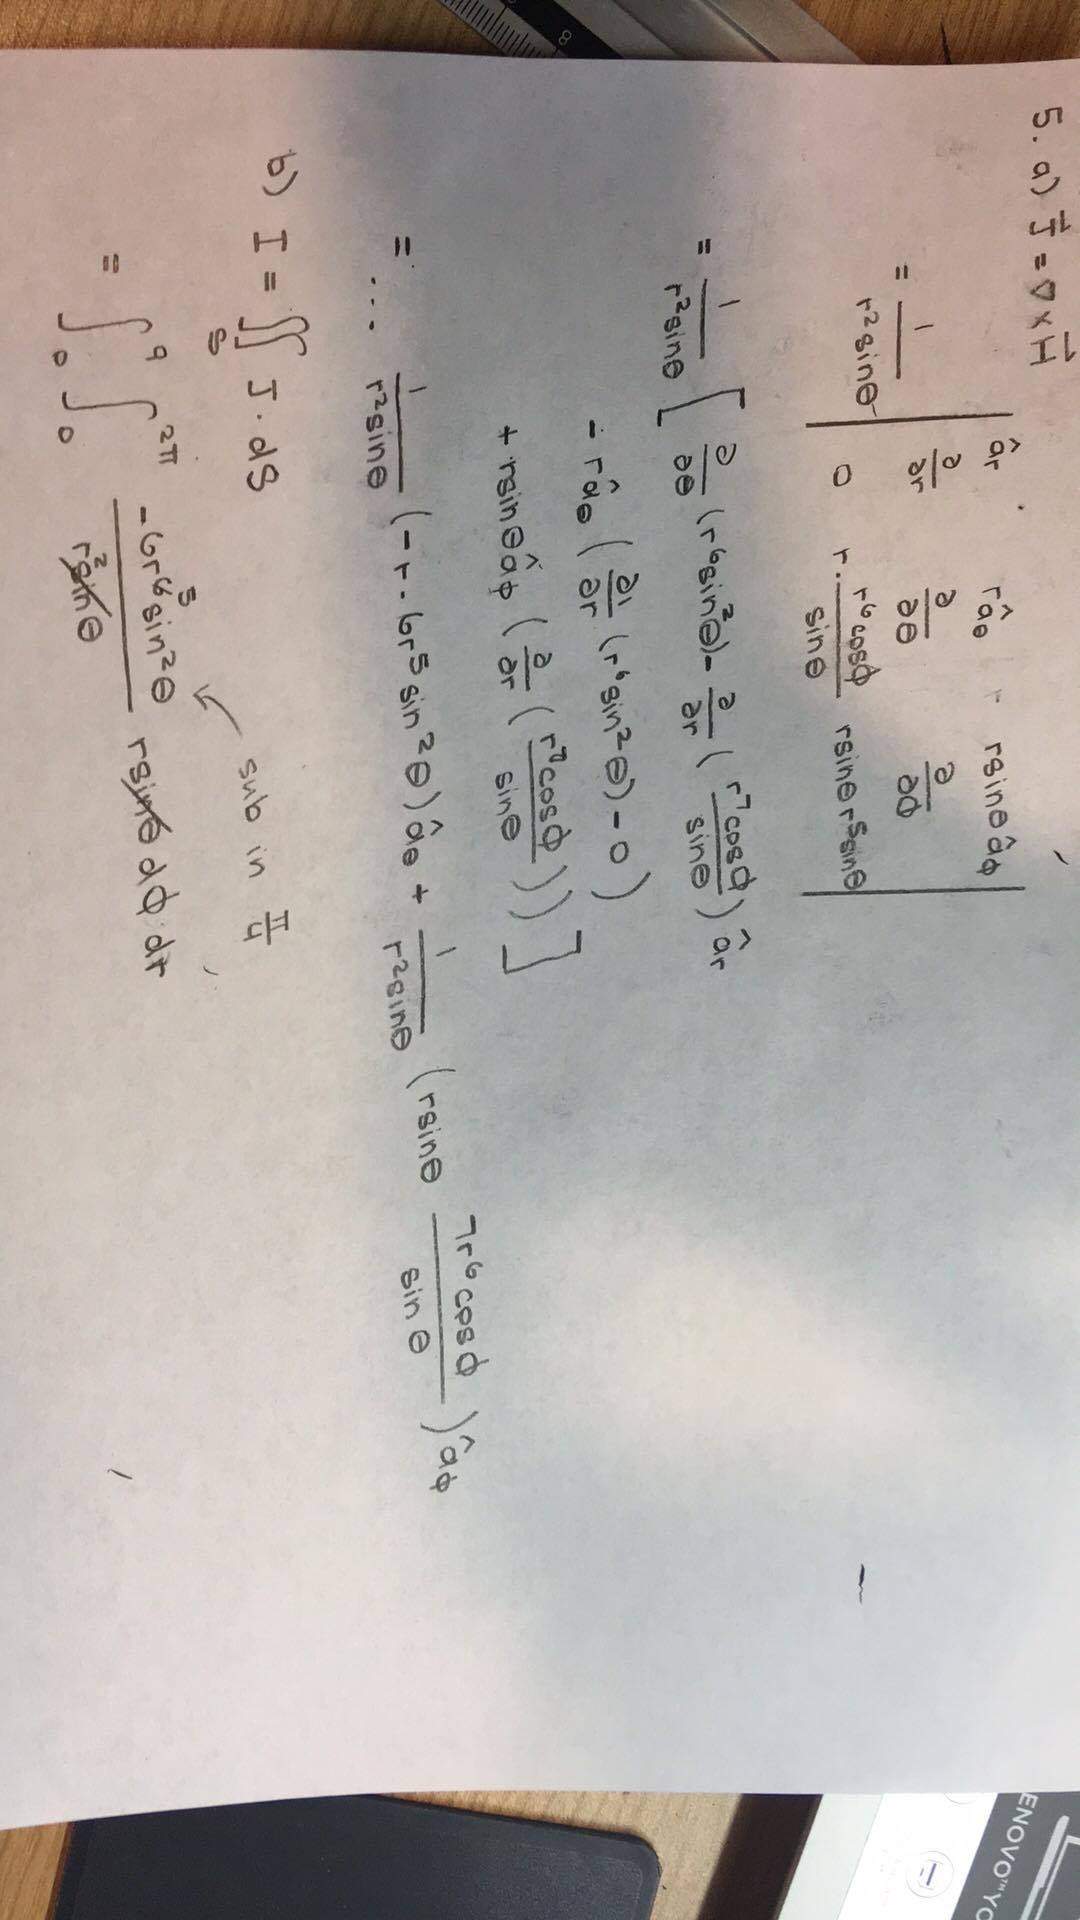 5. a) J = ∇ × H
âr râθ rsinθ âφ
= 1/r²sinθ | ∂/∂r ∂/∂θ ∂/∂φ |
0 r · r⁶cosφ/sinθ rsinθ r⁵sinθ
= 1/r²sinθ [ ∂/∂θ (r⁶sin²θ) - ∂/∂r ( r⁷cosφ/sinθ ) âr
- râθ ( ∂/∂r (r⁶sin²θ) - 0 )
+ rsinθ âφ ( ∂/∂r ( r⁷cosφ/sinθ )) ]
= ... 1/r²sinθ (-r · 6r⁵sin²θ) âθ + 1/r²sinθ (rsinθ 7r⁶cosφ/sinθ) âφ
b) I = ∬s J · dS
sub in π/4
= ∫₀⁹ ∫₀^2π -6r⁶ ⁵ sin²θ / r² sinθ rsinθ dφ dr
8
ENOVO™ YO